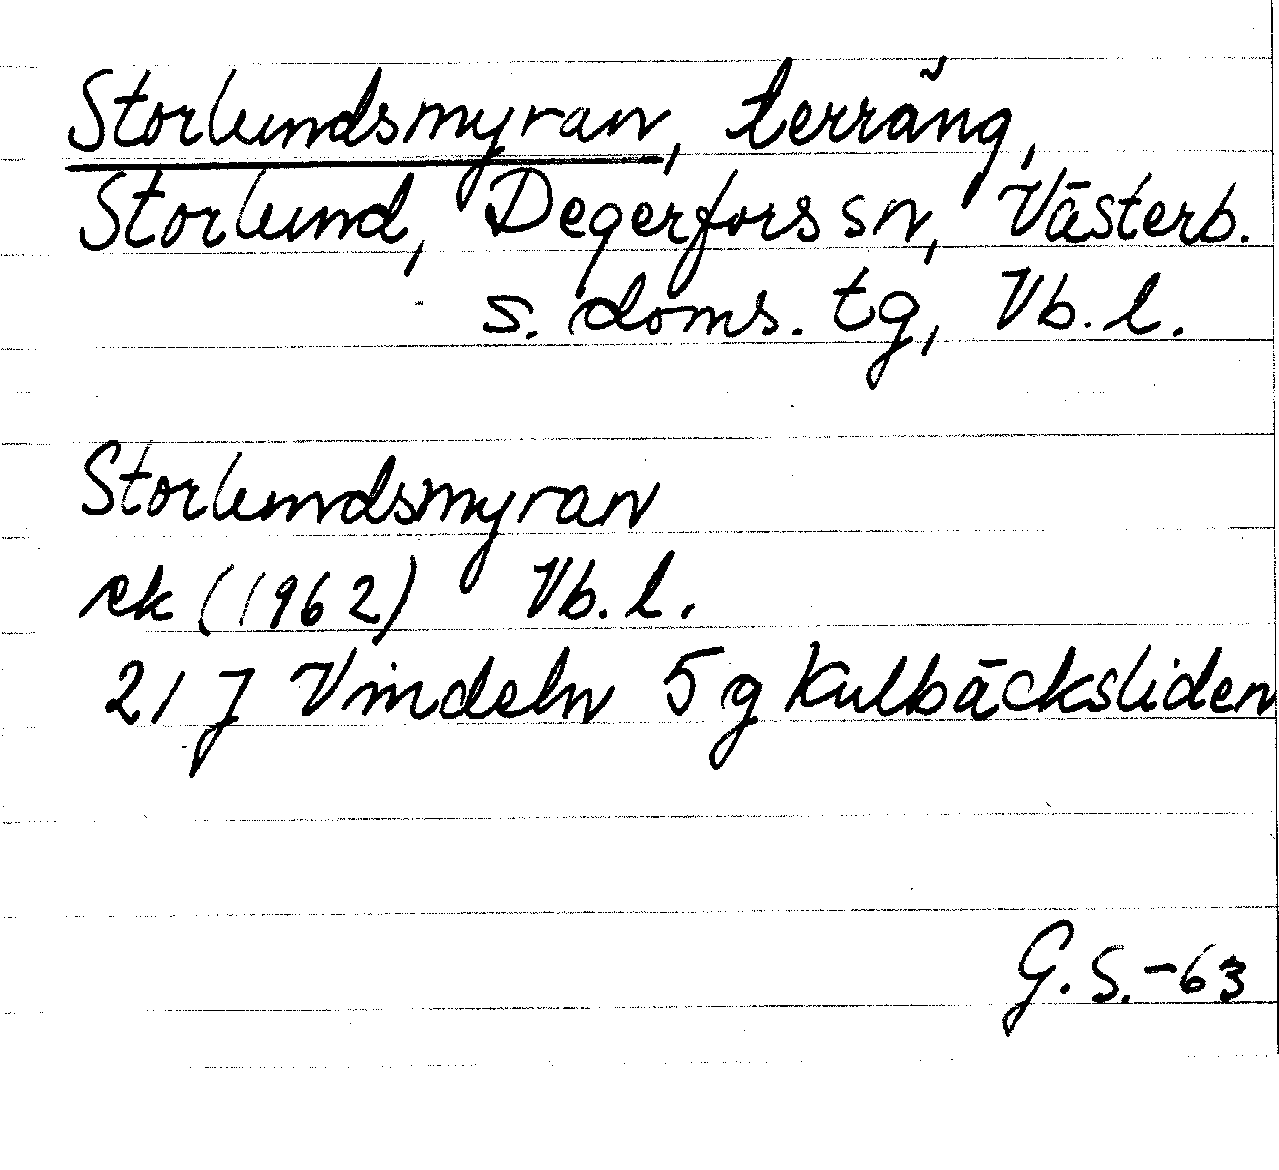 Storlundsmyran, terräng,
Storlund, Degerfors sn, Västerb.
s. doms. tg, Vb. l.
Storlundsmyran
ek (1962) Vb. l.
21 J Vindeln 5 g Kulbäcksliden
G. S. -63